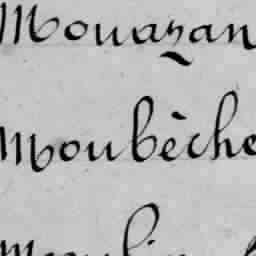 Mouazan
Moubèche